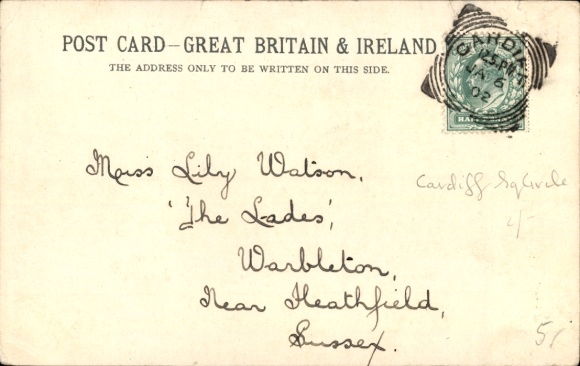 POST CARD—GREAT BRITAIN & IRELAND
THE ADDRESS ONLY TO BE WRITTEN ON THIS SIDE.
CARDIFF
JA 6
02
HALF
Miss Lily Watson,
'The Lades',
Warbleton,
Near Heathfield,
Sussex.
Cardiff Sq Circle
2/-
5/